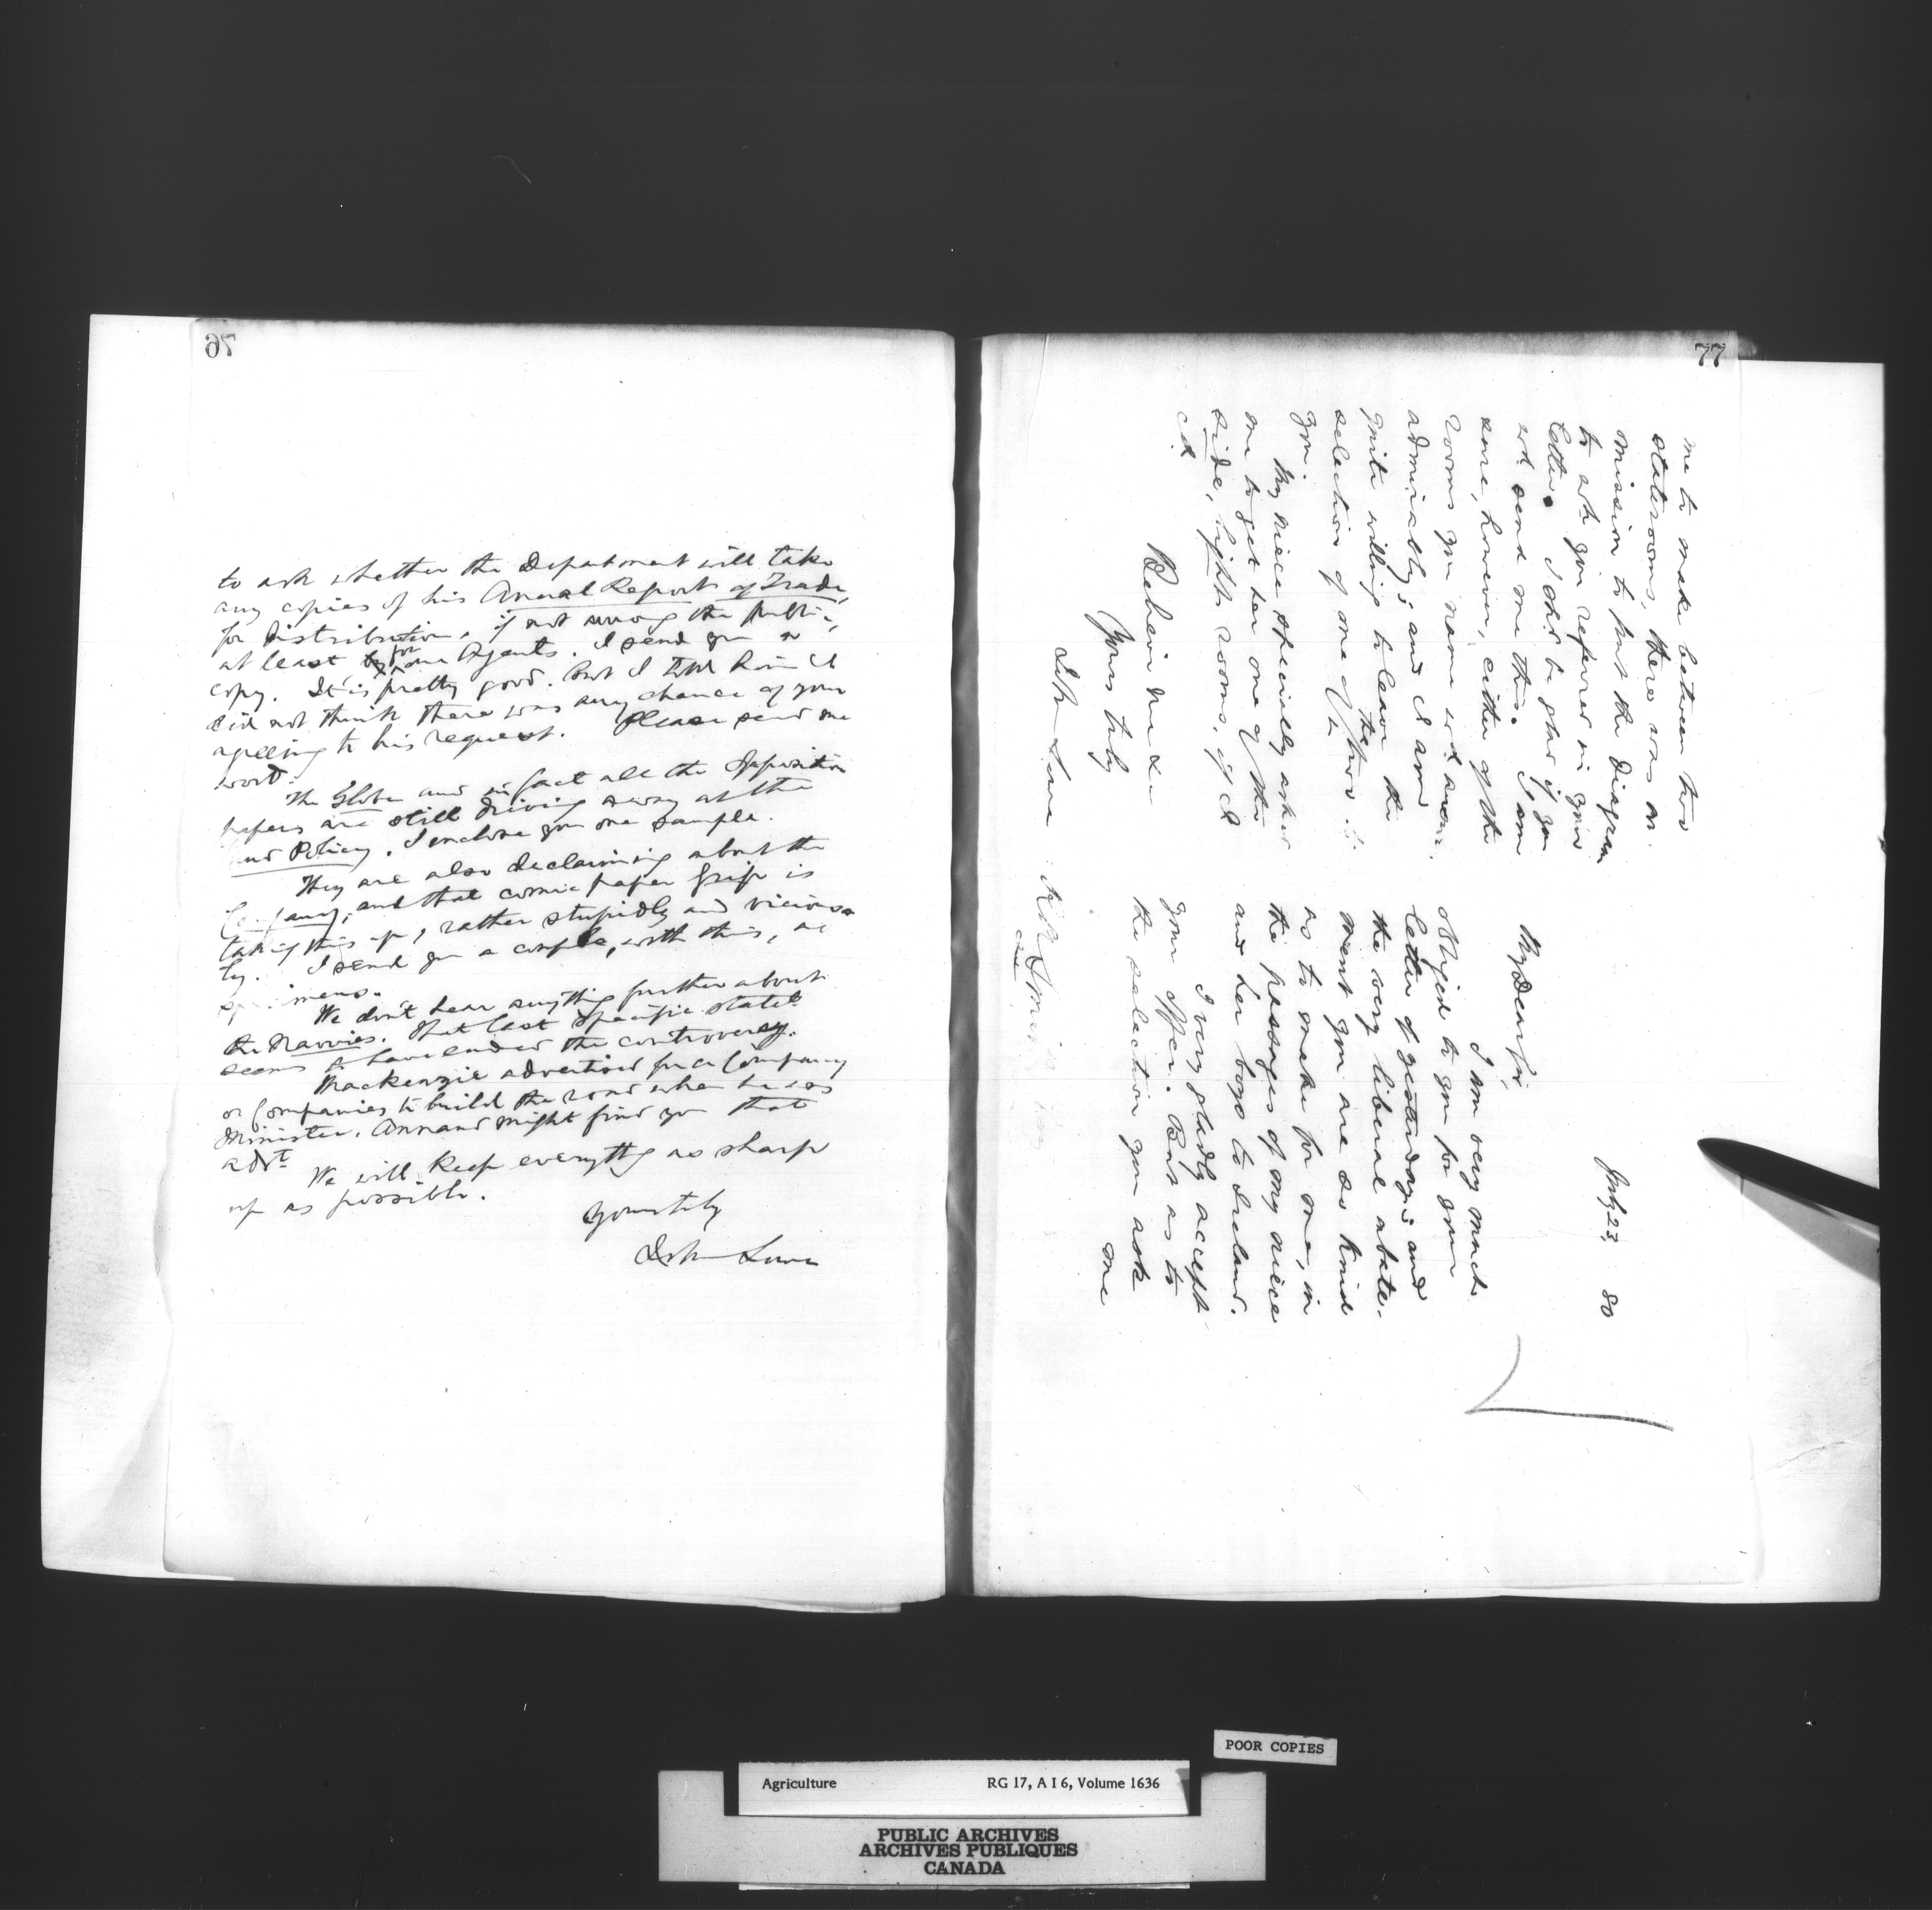 76
to ask whether the Department will take
any copies of his Annual Report of Trade,
for distribution, if not among the public,
at least for our Agents. I send you a
copy. It is pretty good. But I told him I
did not think there was any chance of your
agreeing to his request. Please send me
word.
The Globe and in fact all the Opposition
papers are still driving away at the
Land Policy. I enclose you one sample.
They are also declaiming about the
Company; and that comic paper Grip is
taking this up, rather stupidly and vicious-
ly. I send you a couple, with this, as
specimens.
We don't hear anything further about
the Navvies. That last specific statet
seems to have ended the controversy.
Mackenzie advertised for a Company
or Companies to build the road when he was
Minister. Annand might find you that
advt
We will keep everything as sharp
up as possible.
Yours truly
John Lowe
77
July 23, 80
My Dear Sir,
I am very much
obliged to you for your
letter of yesterday; and
the very liberal abate-
ment you are so kind
as to make for me, in
the passages of my niece
and her boys to Ireland.
I very gladly accept
your offer. But as to
the selection you ask
me
me to make between two
staterooms, there was an
mission to put the diagram
to wh. you referred in your
letter. I shd be glad if you
wd send me this. I am
sure, however, either of the
rooms you name wd answer
admirably; and I am
quite willing to leave the
selection of one of the two to
you.
My niece specially asked
me to get her one of the
side, lights rooms, if I
cd
Believe me dr
Yours truly
John Lowe
Agriculture RG 17, A I 6, Volume 1636
POOR COPIES
PUBLIC ARCHIVES
ARCHIVES PUBLIQUES
CANADA